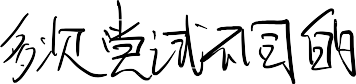 多次尝试不同的